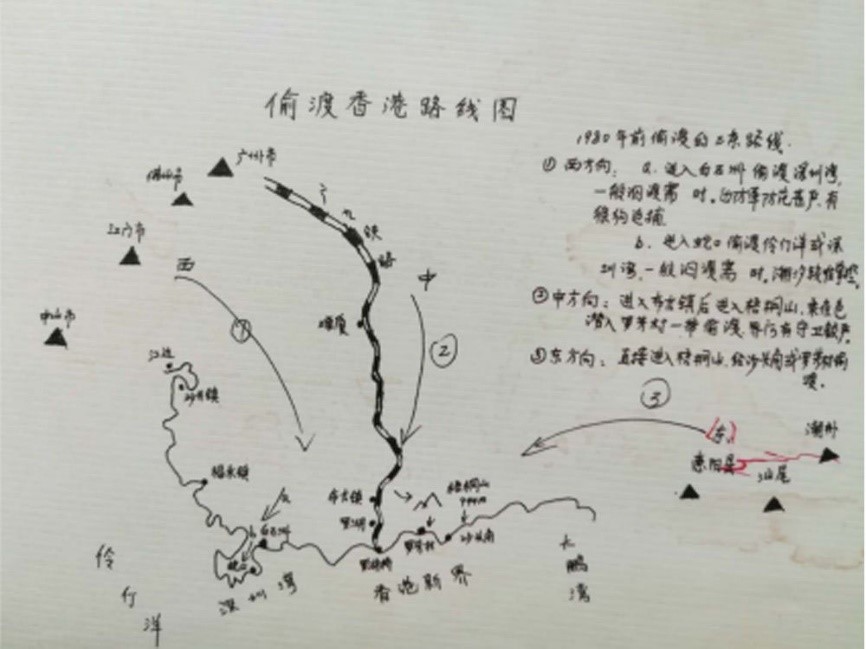 偷渡香港路线图
1980年前偷渡的三条路线.
①西方向: a. 进入白石洲偷渡深圳湾,
一般泅渡需 时, 边防军防范甚严, 有
狼狗追捕.
b. 进入蛇口偷渡伶仃洋或深
圳湾, 一般泅渡需 时, 潮汐
②中方向: 进入布吉镇后进入梧桐山, 乘夜色
潜入罗芳村一带偷渡.
③东方向: 直接进入梧桐山, 经沙头角或罗芳村偷
渡.
广州市
佛山市
江门市
中山市
广九铁路
西
①
中
②
③
东
潮州
惠阳县
汕尾
樟木
沙井镇
福永镇
布吉镇
梧桐山
944m
a
b
白石洲
蛇口
罗湖
罗湖桥
罗芳村
沙头角
伶仃洋
深圳湾
香港新界
大鹏湾